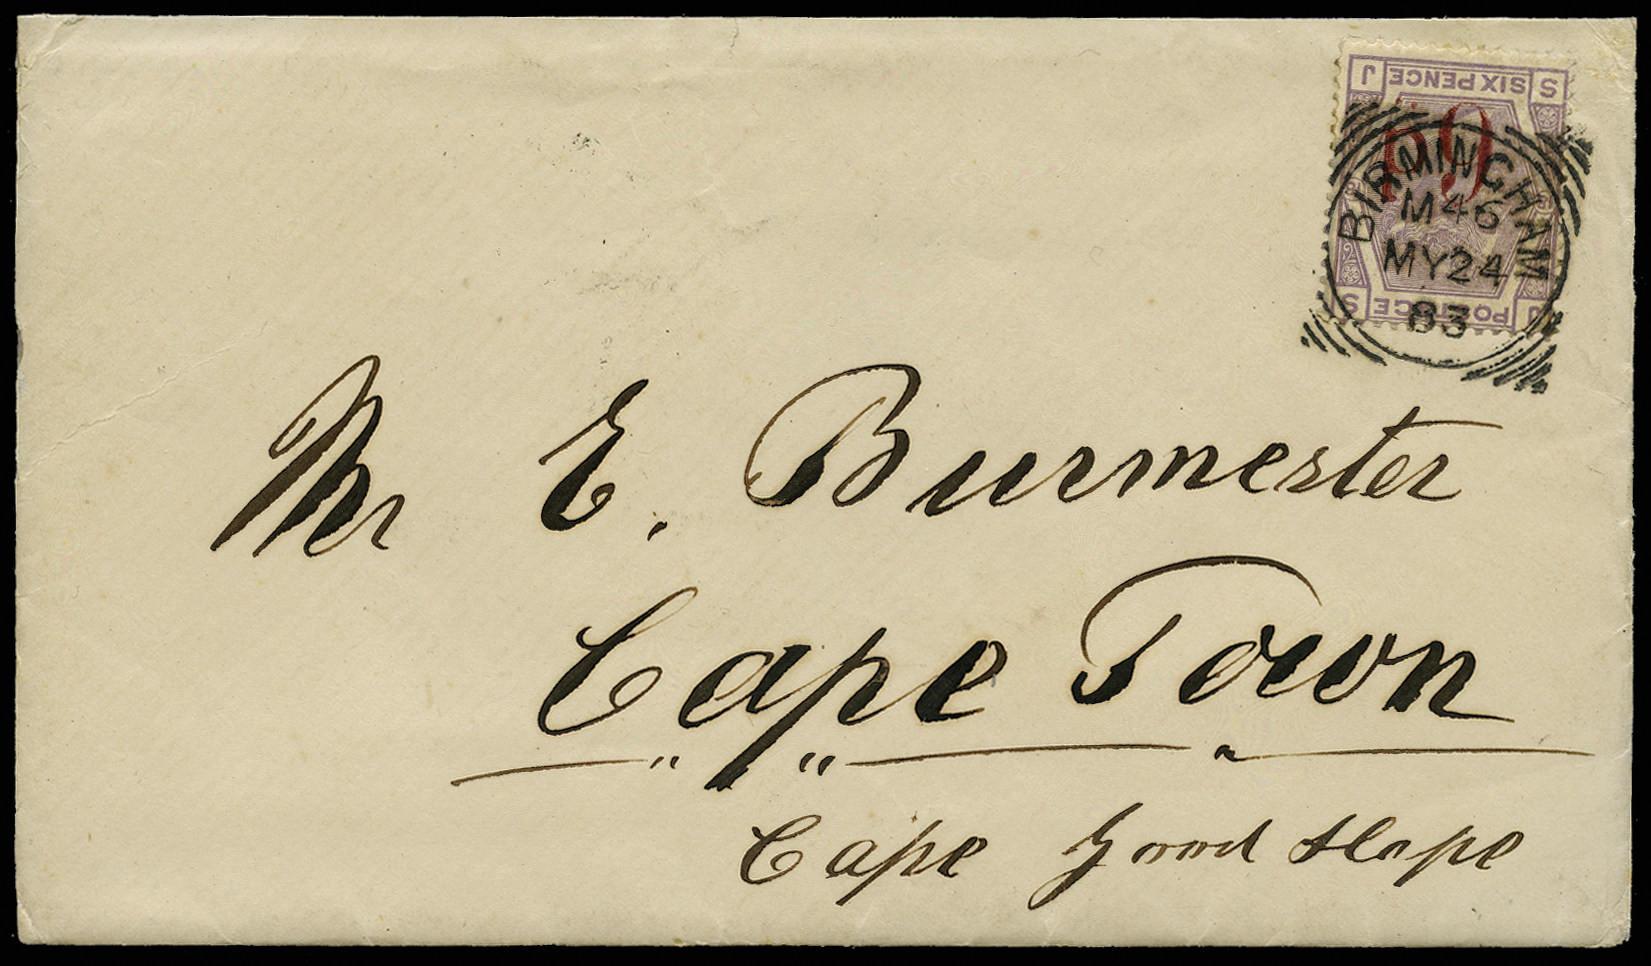 S SIX PENCE J
6d
BIRMINGHAM
M 46
MY 24
83
J POSTAGE S
Mr E. Burmester
Cape Town
Cape Good Hope